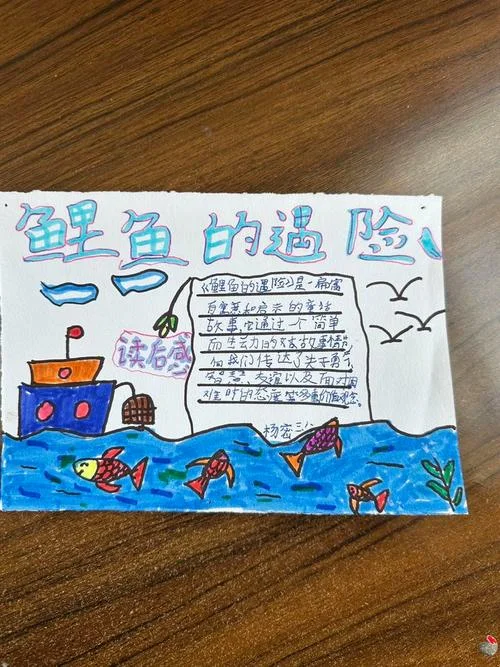 鲤鱼的遇险
读后感
《鲤鱼的遇险》是一篇富
有童趣和启示的童话
故事,它通过一个简单
而生动的故事情节,
向我们传达了关于勇气
智慧、友谊以及面对困
难时的态度等多重价值观念。
杨密三